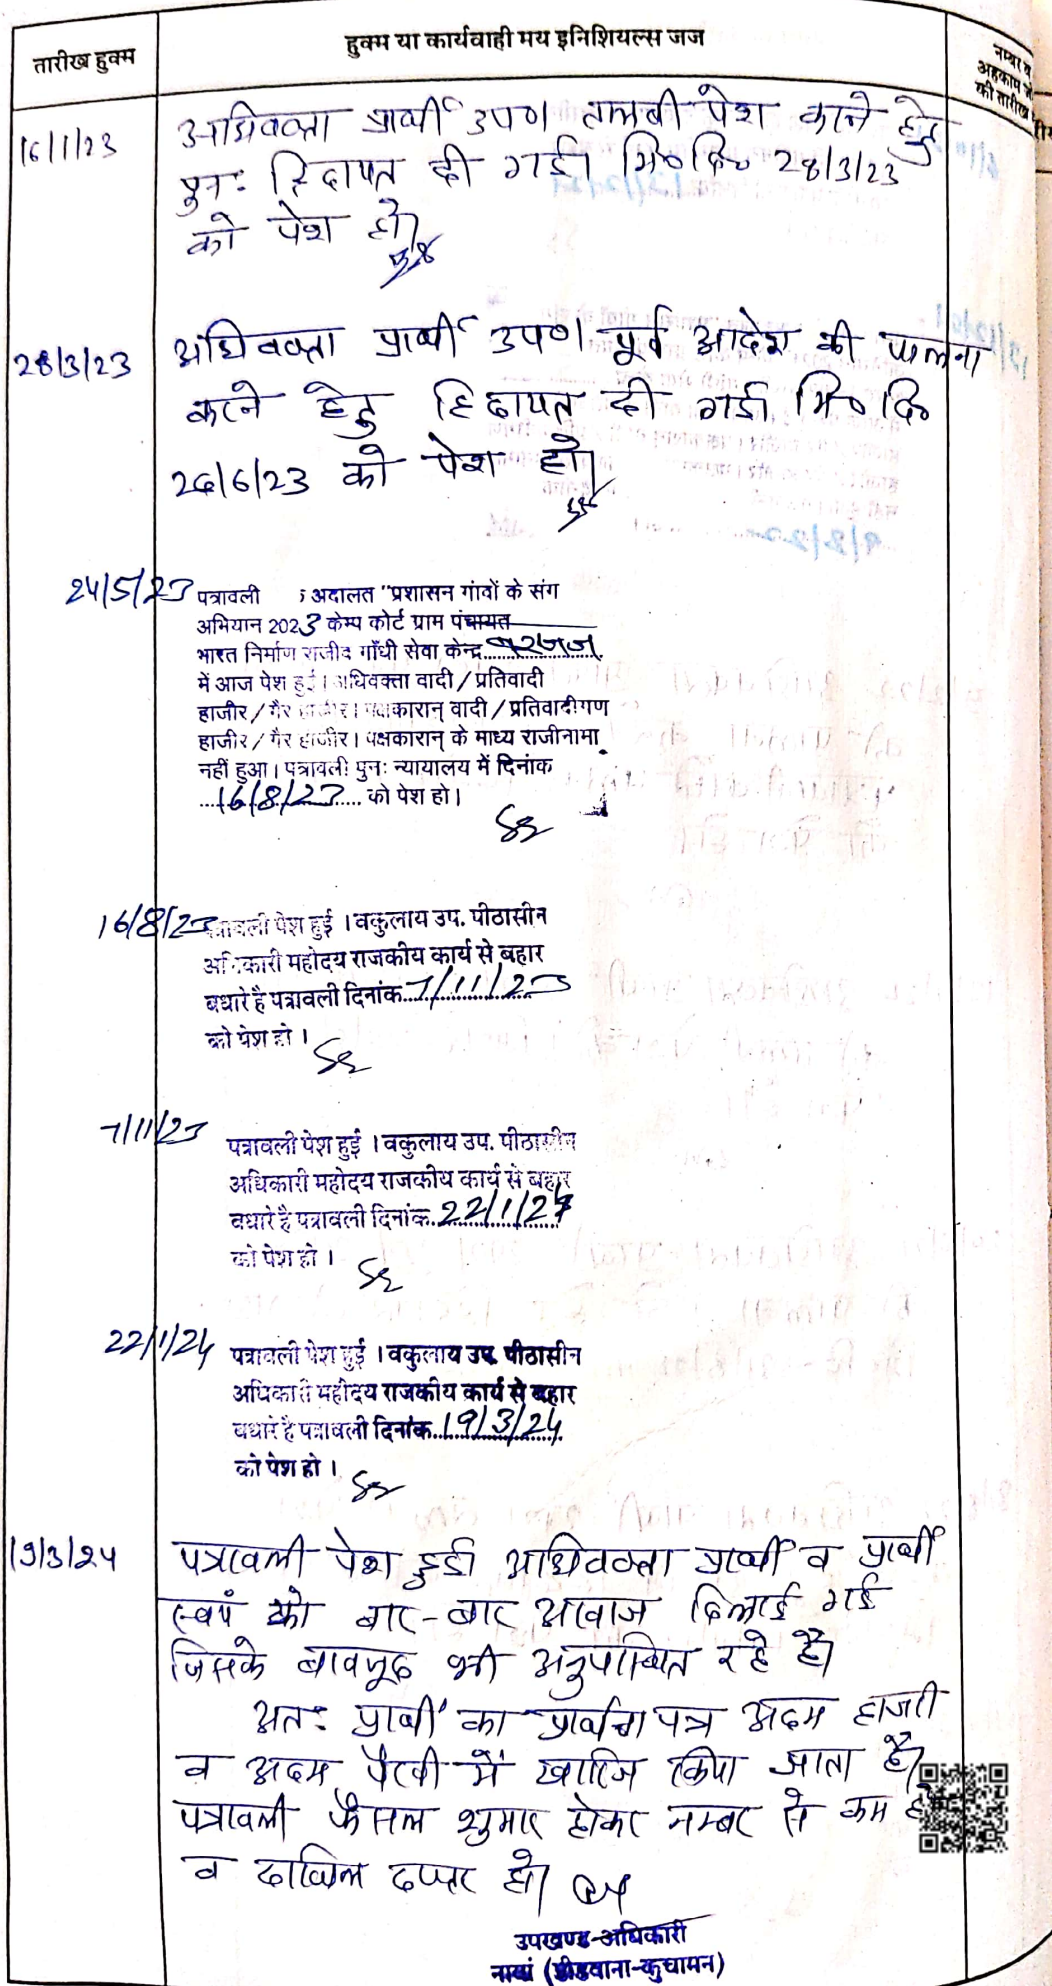 तारीख हुक्म
हुक्म या कार्यवाही मय इनिशियल्स जज
नम्बर व
अहकाम जो
की तारीख
16/1/23
अधिवक्ता प्रार्थी उपण तलबी पेश करने हेतु
पुनः हिदायत दी गई। मि० दि० 28/3/23
को पेश हो।
28/3/23
अधिवक्ता प्रार्थी उपण पूर्व आदेश की पालना
करने हेतु हिदायत दी गई। मि० दि०
26/6/23 को पेश हो।
24/5/23
पत्रावली अदालत "प्रशासन गांवों के संग
अभियान 2023 केम्प कोर्ट ग्राम पंचायत
भारत निर्माण राजीव गाँधी सेवा केन्द्र
में आज पेश हुई। अधिवक्ता वादी / प्रतिवादी
हाजीर / गैर हाजीर। पक्षकारान् वादी / प्रतिवादीगण
हाजीर / गैर हाजीर। पक्षकारान् के माध्य राजीनामा
नहीं हुआ। पत्रावली पुनः न्यायालय में दिनांक
16/8/23 को पेश हो।
16/8/23
पत्रावली पेश हुई । वकुलाय उप. पीठासीन
अधिकारी महोदय राजकीय कार्य से बहार
बधारे है पत्रावली दिनांक 7/11/23
को पेश हो ।
7/11/23
पत्रावली पेश हुई । वकुलाय उप. पीठासीन
अधिकारी महोदय राजकीय कार्य से बहार
बधारे है पत्रावली दिनांक 22/1/24
को पेश हो ।
22/1/24
पत्रावली पेश हुई । वकुलाय उप. पीठासीन
अधिकारी महोदय राजकीय कार्य से बहार
बधारे है पत्रावली दिनांक 19/3/24
को पेश हो ।
19/3/24
पत्रावली पेश हुई। अधिवक्ता प्रार्थी व प्रार्थी
स्वयं को बार-बार आवाज दिलाई गई
जिसके बावजूद भी अनुपस्थित रहे है।
अतः प्रार्थी का प्रार्थना पत्र अदम हाजरी
व अदम पैरवी में खारिज किया जाता है।
पत्रावली फैसल शुमार होकर नम्बर से कम हो
व दाखिल दफ्तर हो।
उपखण्ड-अधिकारी
नावां (डीडवाना-कुचामन)